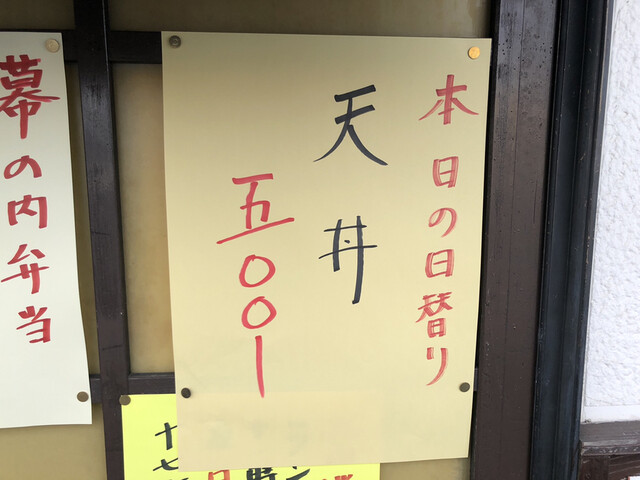 本日の日替り
天丼
五〇〇ー
幕の内弁当